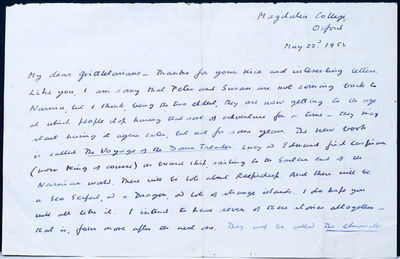 Magdalen College,
Oxford
May 22d 1952
My dear Grittletonians – Thanks for your nice and interesting letters.
Like you, I am sorry that Peter and Susan are not coming back to
Narnia, but I think, being the two eldest, they are now getting to the age
at which people stop having that sort of adventure for a time – they may
start having it again later, but not for some years. The new book
is called The Voyage of the Dawn Treader. Lucy & Edmund find Caspian
(now King of course) on board ship sailing to the Eastern end of the
Narnian world. There will be lots about Reepicheep. And there will be
a Sea Serpent, & a Dragon, & lots of strange islands. I do hope you
will all like it. I intend to have seven of these stories altogether –
that is, four more after the next one. They will be called The Chronicles